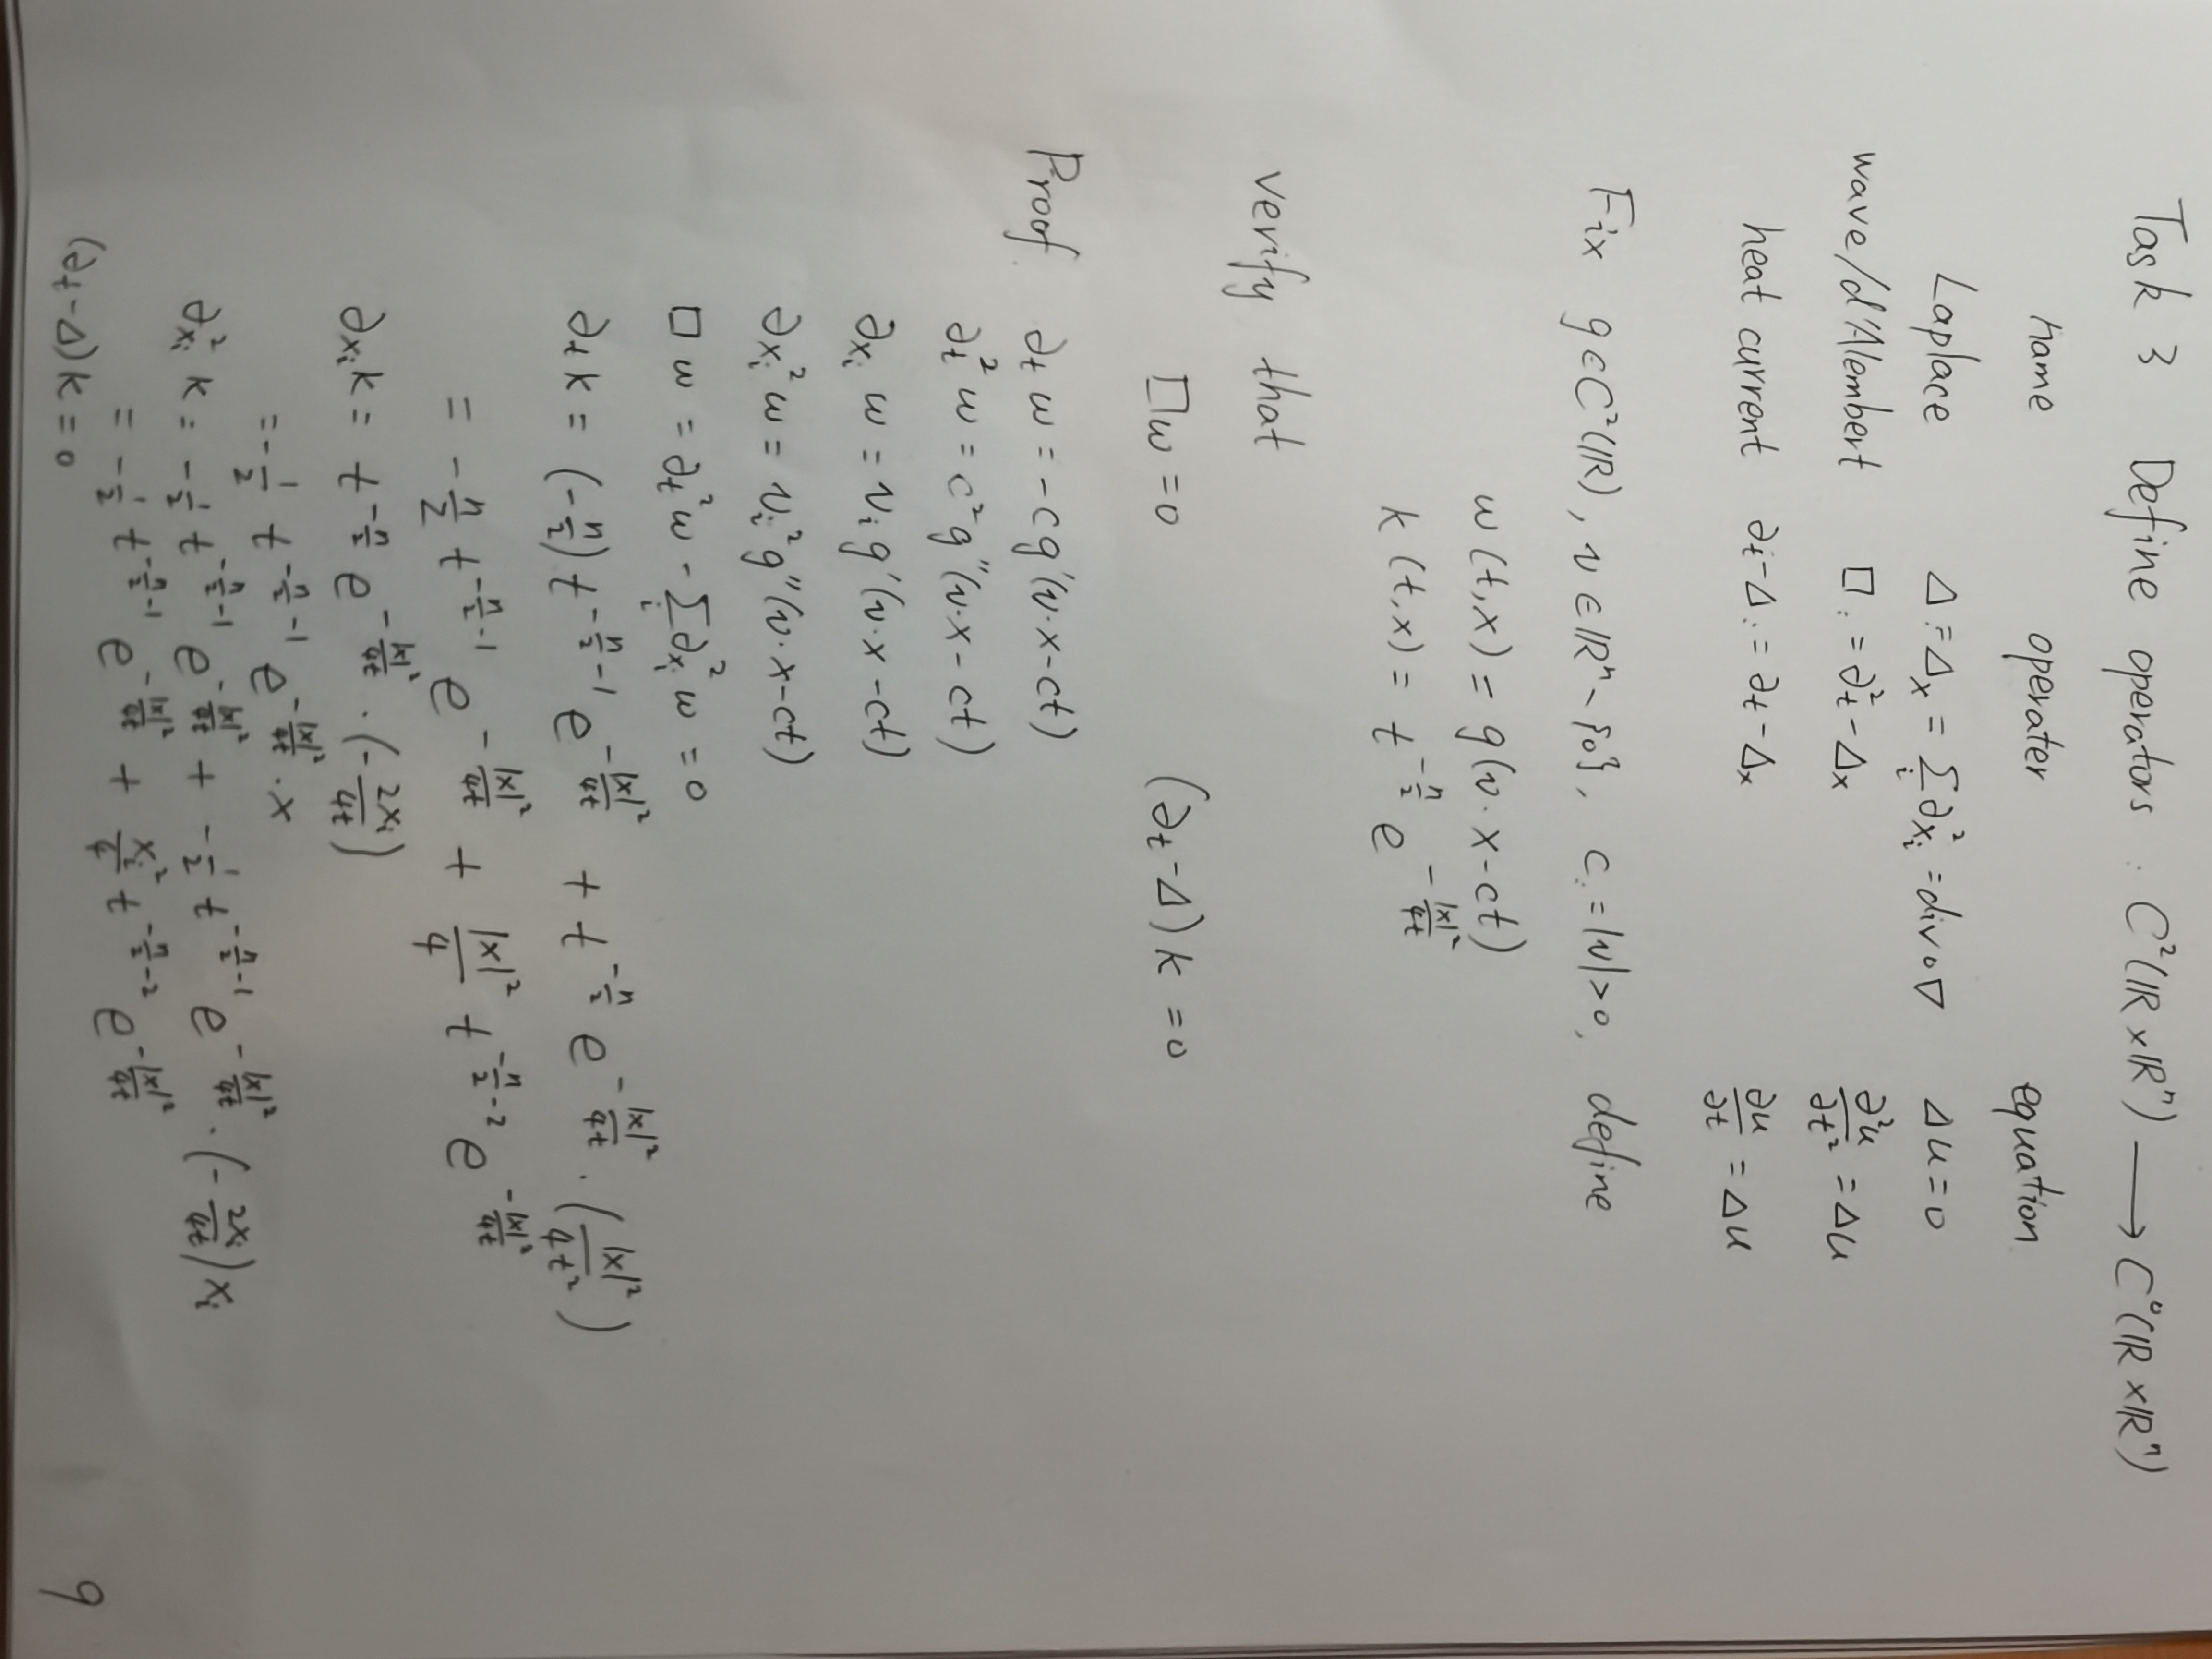 Task 3 Define operators : C²(ℝ×ℝⁿ) ⟶ C⁰(ℝ×ℝⁿ)
name operater equation
Laplace Δ := Δₓ = ∑_i ∂²_{x_i} = div∘∇ Δu = 0
wave/d'Alembert □ := ∂_t² - Δₓ ∂²u/∂t² = Δu
heat current ∂_t - Δ := ∂_t - Δₓ ∂u/∂t = Δu
Fix g∈C²(ℝ), v∈ℝⁿ~{0}, c := |v|>0, define
w(t,x) = g(v·x-ct)
k(t,x) = t^{-n/2} e^{-|x|²/4t}
verify that
□w = 0 (∂_t - Δ)k = 0
Proof. ∂_t w = -cg'(v·x-ct)
∂_t² w = c²g''(v·x-ct)
∂_{x_i} w = v_i g'(v·x-ct)
∂_{x_i}² w = v_i² g''(v·x-ct)
□w = ∂_t² w - ∑_i ∂_{x_i}² w = 0
∂_t k = (-n/2) t^{-n/2-1} e^{-|x|²/4t} + t^{-n/2} e^{-|x|²/4t} · (|x|²/4t²)
= -n/2 t^{-n/2-1} e^{-|x|²/4t} + |x|²/4 t^{-n/2-2} e^{-|x|²/4t}
∂_{x_i} k = t^{-n/2} e^{-|x|²/4t} · (-2x_i/4t)
= -1/2 t^{-n/2-1} e^{-|x|²/4t} · x
∂²_{x_i} k = -1/2 t^{-n/2-1} e^{-|x|²/4t} + -1/2 t^{-n/2-1} e^{-|x|²/4t} · (-2x_i/4t) x_i
= -1/2 t^{-n/2-1} e^{-|x|²/4t} + x_i²/4 t^{-n/2-2} e^{-|x|²/4t}
(∂_t - Δ)k = 0
9